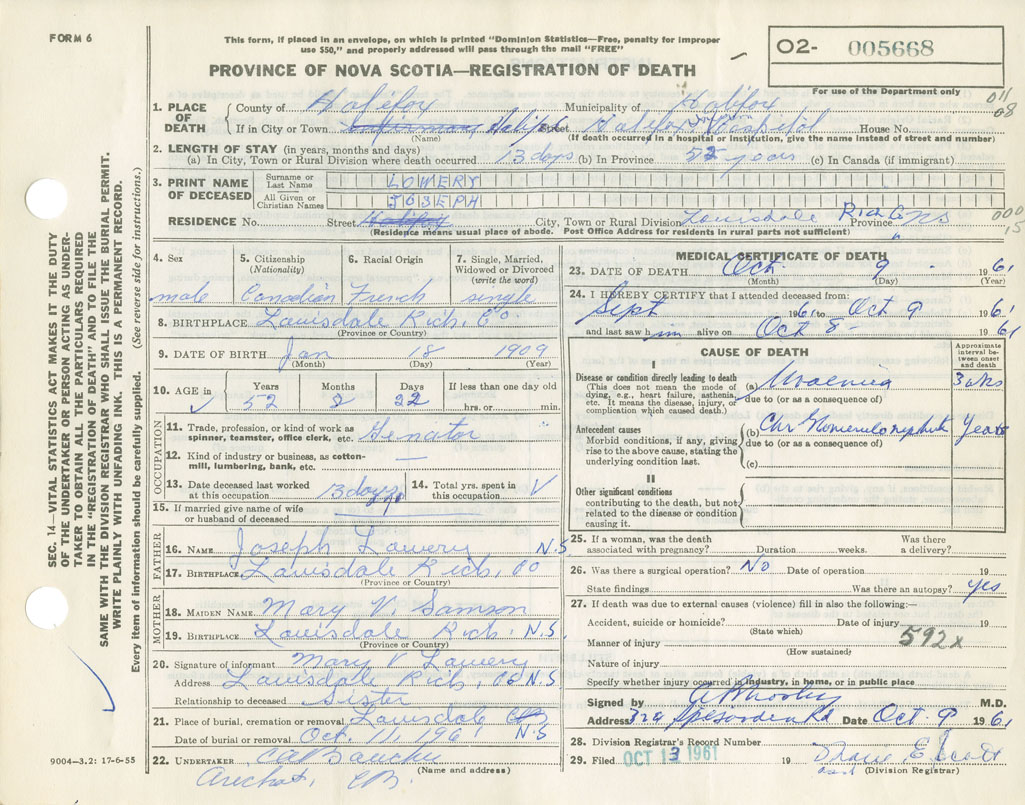 FORM 6
This form, if placed in an envelope, on which is printed "Dominion Statistics—Free, penalty for improper
use $50," and properly addressed will pass through the mail "FREE"
02- 005668
PROVINCE OF NOVA SCOTIA—REGISTRATION OF DEATH
For use of the Department only
011
08
1. PLACE OF DEATH
County of Halifax Municipality of Halifax
If in City or Town Halifax Street Halifax Hospital House No.
(Name) (If death occurred in a hospital or institution, give the name instead of street and number)
2. LENGTH OF STAY (in years, months and days)
(a) In City, Town or Rural Division where death occurred 13 days (b) In Province 52 years (c) In Canada (if immigrant)
3. PRINT NAME OF DECEASED
Surname or Last Name LOWERY
All Given or Christian Names JOSEPH
RESIDENCE No. Street Halifax City, Town or Rural Division Louisdale Rich Co Province NS
000
15
(Residence means usual place of abode. Post Office Address for residents in rural parts not sufficient)
4. Sex
male
5. Citizenship
(Nationality)
Canadian
6. Racial Origin
French
7. Single, Married,
Widowed or Divorced
(write the word)
single
8. BIRTHPLACE Louisdale Rich, Co
(Province or Country)
9. DATE OF BIRTH Jan 18 1909
(Month) (Day) (Year)
10. AGE in Years Months Days If less than one day old
52 8 22 hrs. or min.
OCCUPATION
11. Trade, profession, or kind of work as
spinner, teamster, office clerk, etc.
12. Kind of industry or business, as cotton-
mill, lumbering, bank, etc. —
13. Date deceased last worked
at this occupation 13 days
14. Total yrs. spent in
this occupation
15. If married give name of wife
or husband of deceased
FATHER
16. NAME Joseph Lowery N.S
17. BIRTHPLACE Louisdale Rich, Co
(Province or Country)
MOTHER
18. MAIDEN NAME Mary V. Samson
19. BIRTHPLACE Louisdale Rich. N.S.
(Province or Country)
20. Signature of informant Mary V Lowery
Address Louisdale Rich, Co N.S
Relationship to deceased Sister
21. Place of burial, cremation or removal Louisdale
Date of burial or removal Oct. 11, 1961 N.S
22. UNDERTAKER
Arichat, CB.
(Name and address)
MEDICAL CERTIFICATE OF DEATH
23. DATE OF DEATH Oct 9 1961
(Month) (Day) (Year)
24. I HEREBY CERTIFY that I attended deceased from:
Sept 1961 to Oct 9 1961
and last saw him alive on Oct 8 1961
CAUSE OF DEATH
Approximate
interval be-
tween onset
and death
I
Disease or condition directly leading to death
(This does not mean the mode of
dying, e.g., heart failure, asthenia,
etc. It means the disease, injury, or
complication which caused death.)
(a) Uraemia 3 wks
due to (or as a consequence of)
Antecedent causes
Morbid conditions, if any, giving
rise to the above cause, stating the
underlying condition last.
(b) Chr Glomerulonephritis Years
due to (or as a consequence of)
(c)
II
Other significant conditions
contributing to the death, but not
related to the disease or condition
causing it.
25. If a woman, was the death
associated with pregnancy? Duration weeks. Was there
a delivery?
26. Was there a surgical operation? No Date of operation 19
State findings Was there an autopsy? yes
27. If death was due to external causes (violence) fill in also the following:—
Accident, suicide or homicide? Date of injury 19
(State which)
Manner of injury 592x
(How sustained)
Nature of injury
Specify whether injury occurred in industry, in home, or in public place
Signed by M.D.
Address Date Oct. 9 1961
28. Division Registrar's Record Number
29. Filed OCT 13 1961 19
(Division Registrar)
SEC. 14—VITAL STATISTICS ACT MAKES IT THE DUTY
OF THE UNDERTAKER OR PERSON ACTING AS UNDER-
TAKER TO OBTAIN ALL THE PARTICULARS REQUIRED
IN THE "REGISTRATION OF DEATH" AND TO FILE THE
SAME WITH THE DIVISION REGISTRAR WHO SHALL ISSUE THE BURIAL PERMIT.
WRITE PLAINLY WITH UNFADING INK. THIS IS A PERMANENT RECORD.
Every item of information should be carefully supplied. (See reverse side for instructions.)
9004—3.2: 17-6-55